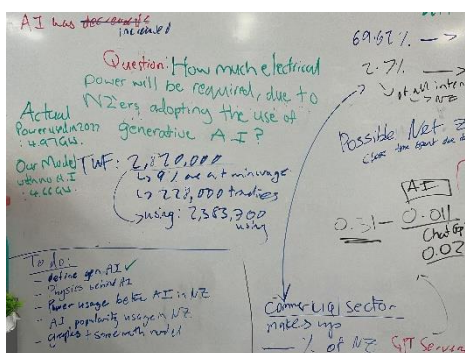 AI was
increased
Question: How much electrical
power will be required, due to
NZers adopting the use of
generative AI?
Actual
Power used in 2022
: 4.97GW
Our Model
with no A.I
: 4.66GW
TWF: 2,820,000
↳ 9% are at min wage
↳ 228,000 tradies
using: 2,383,700
using
To do:
- define gen. AI ✓
- Physics behind AI
- Power usage before AI in NZ
- AI popularity usage in NZ
- Graphs + some math model
69.62% →
2.7% →
↳ of all
↳ NZ
Possible Net
AI
0.31 - 0.011
0.02
Commercial sector
makes up
% of NZ
GPT Server